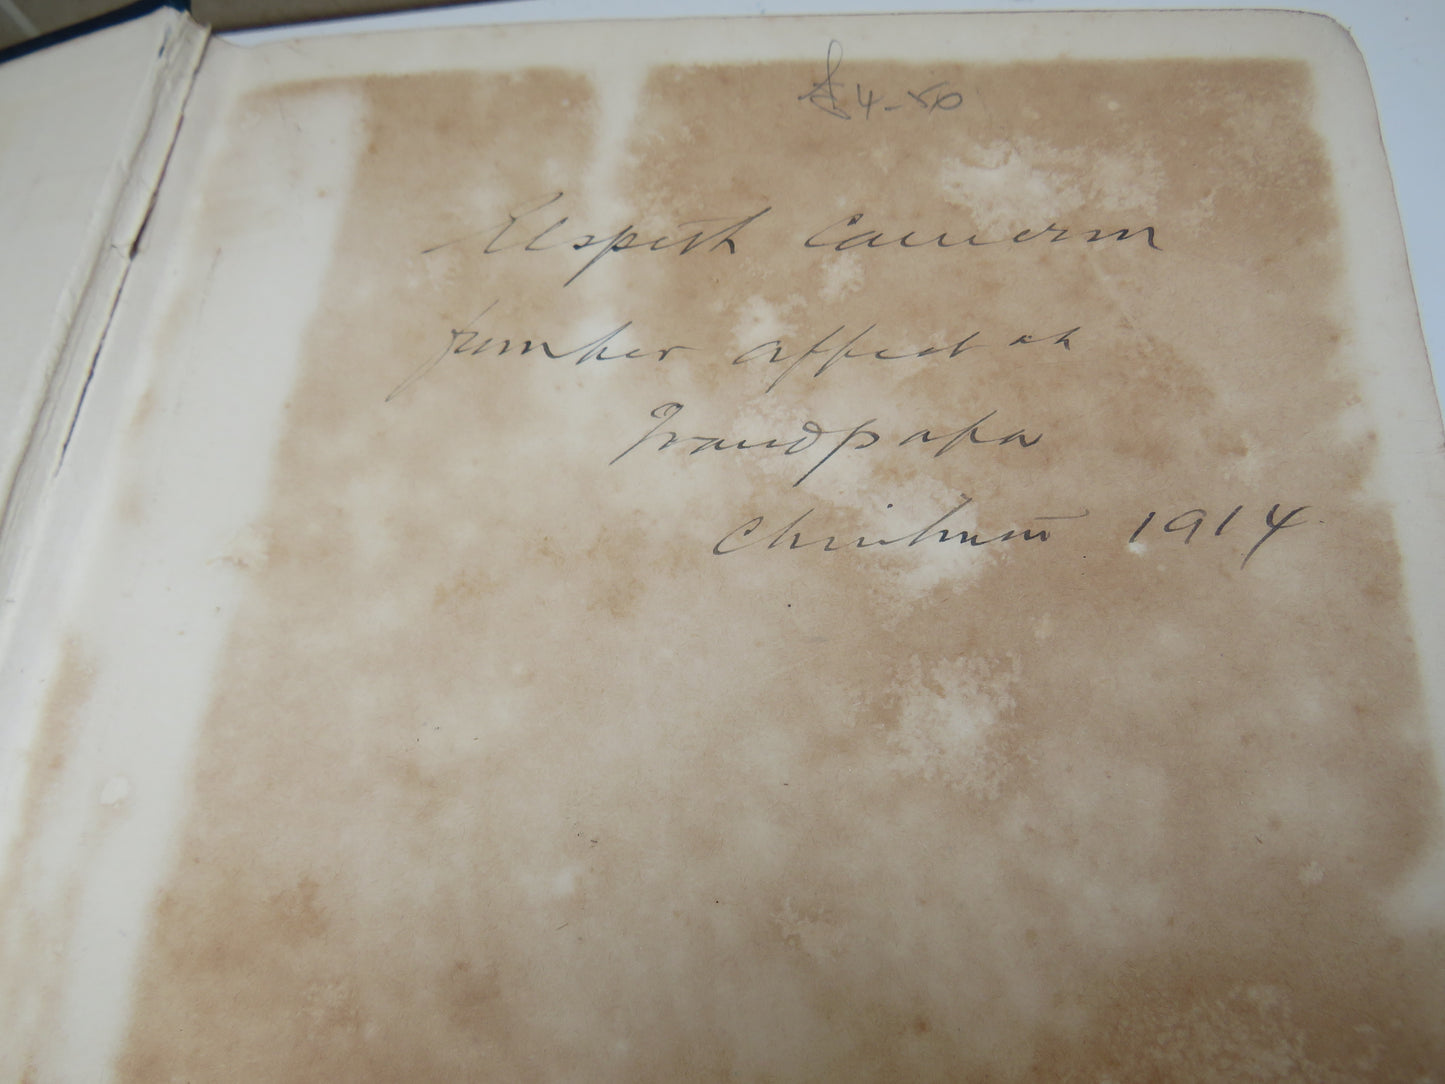 $4-50
Elspeth Cameron
from her affect at
Grandpapa
Christmas 1914